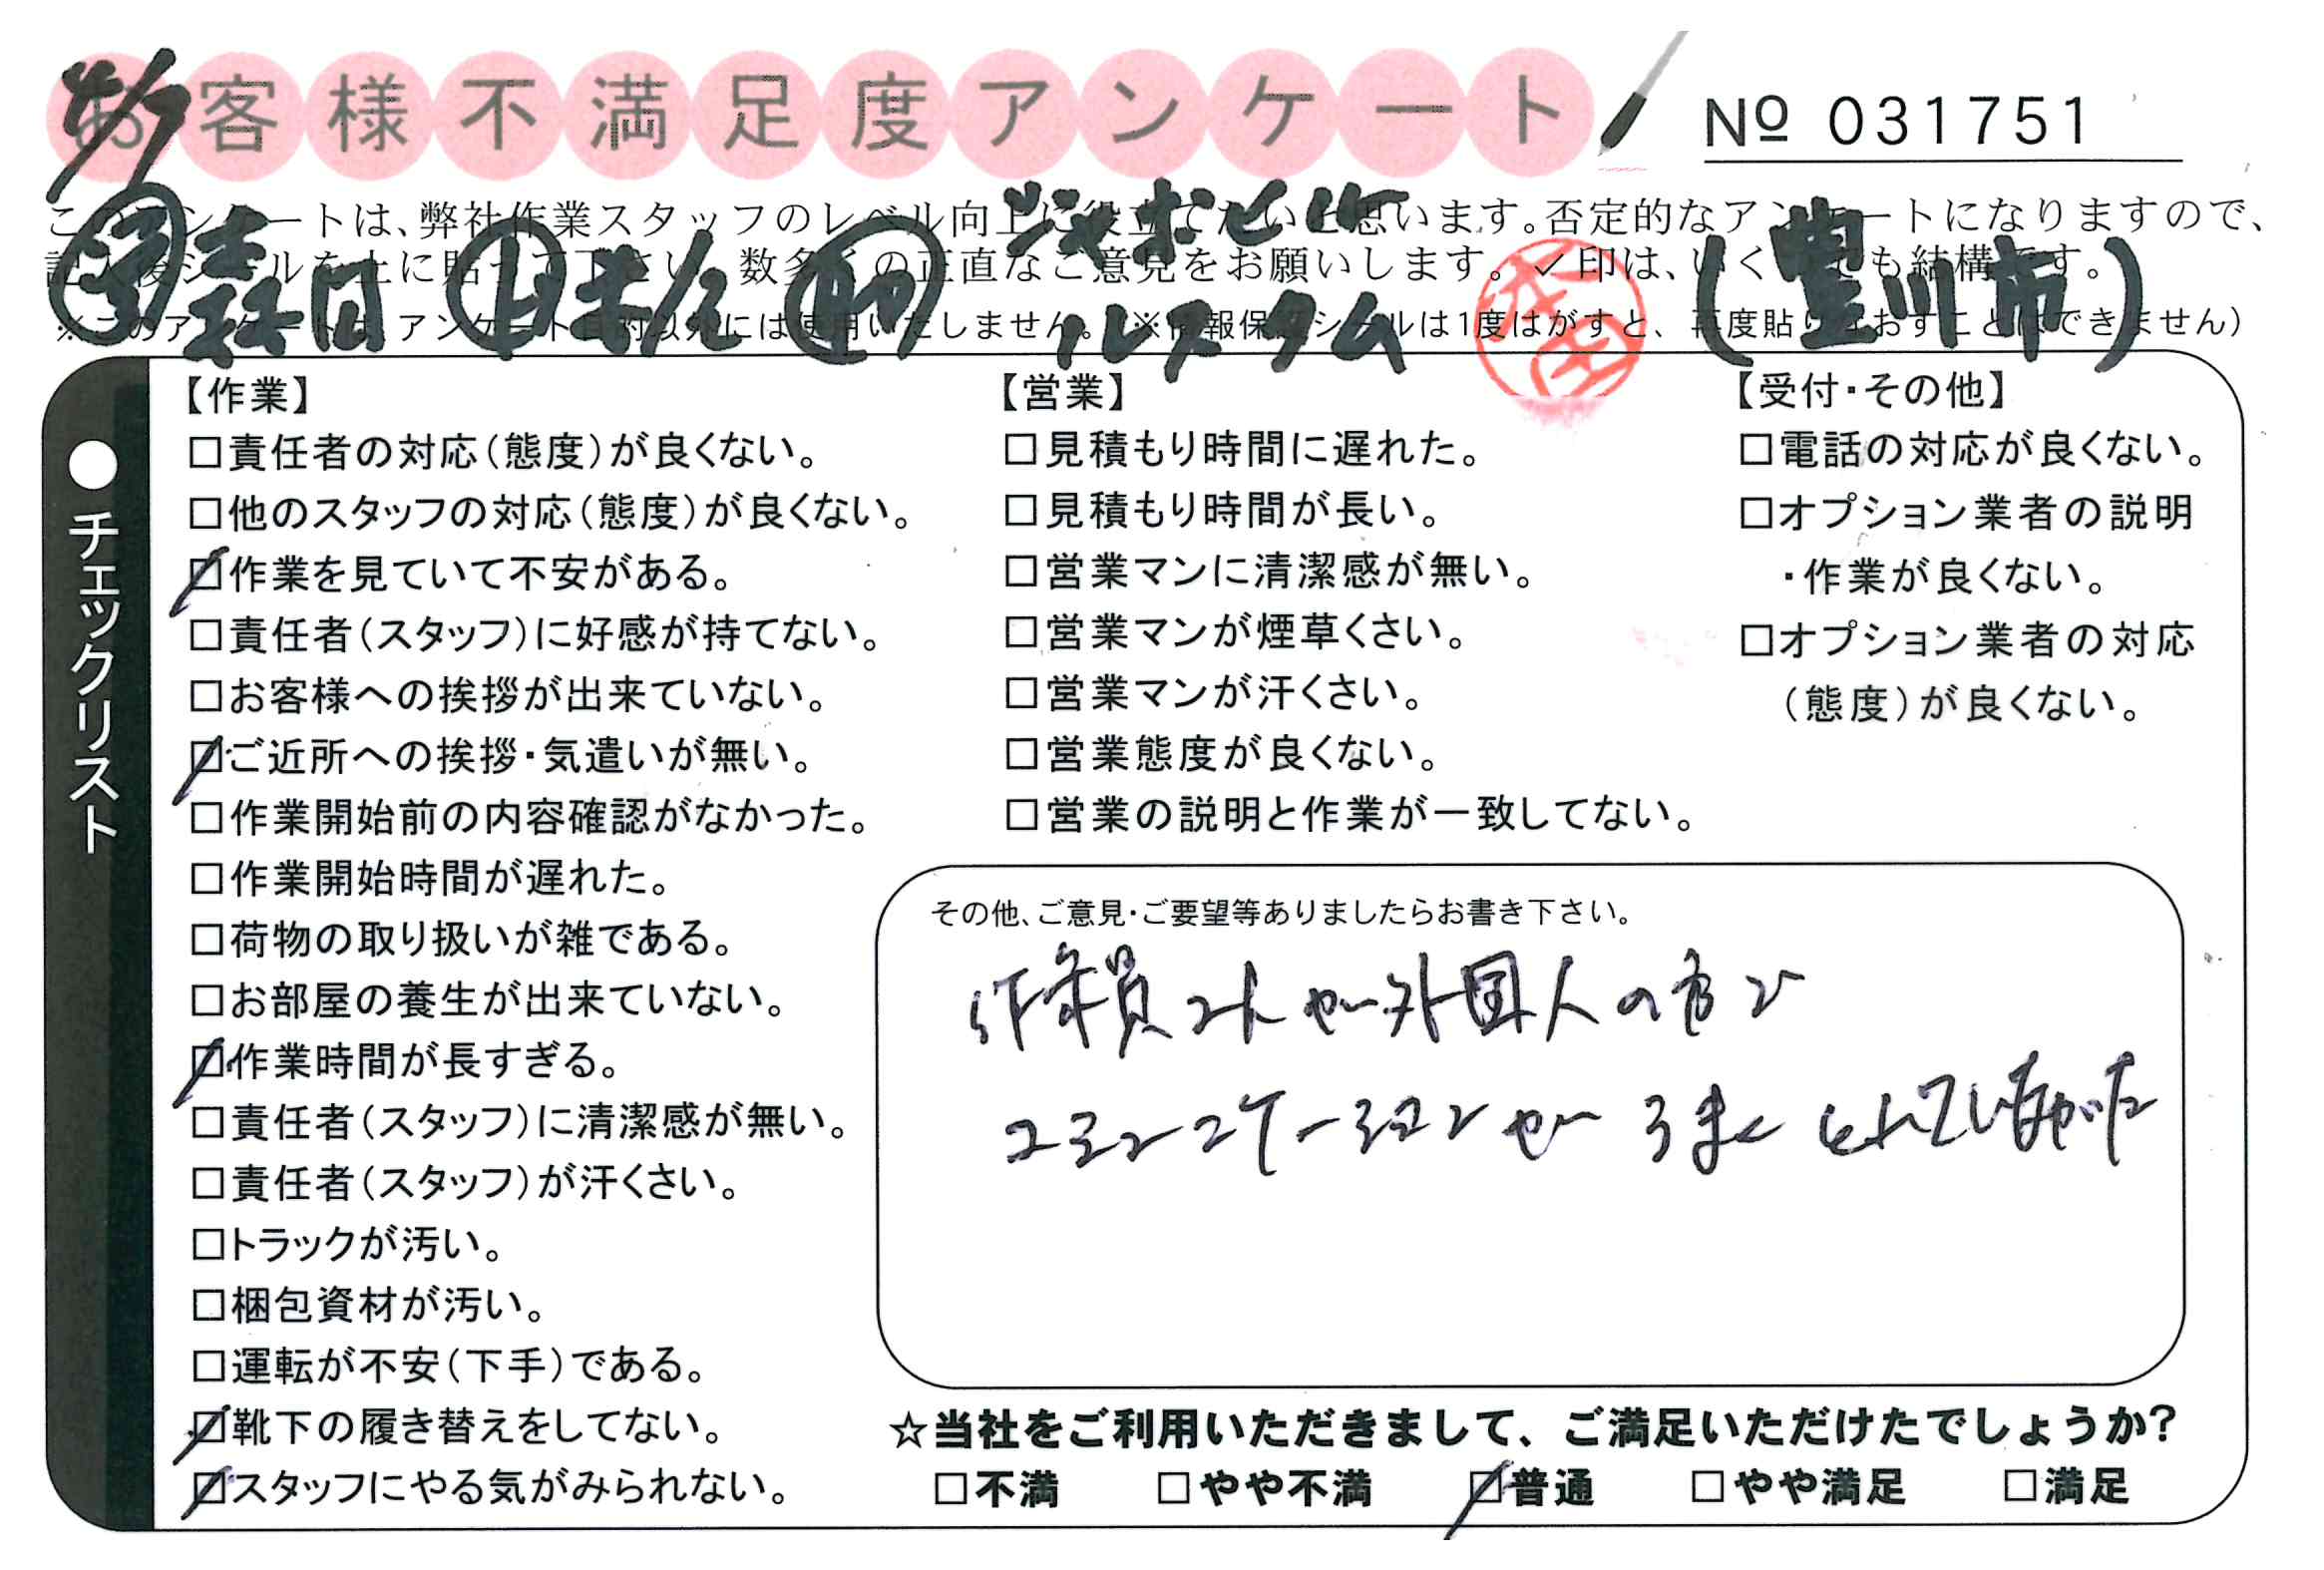 お客様不満足度アンケート
№ 031751
4/7
このアンケートは、弊社作業スタッフのレベル向上に役立てたいと思います。否定的なアンケートになりますので、
記入後シールを上に貼って下さい。数多くの正直なご意見をお願いします。✓印は、いくつでも結構です。
※このアンケートは、アンケート目的以外には使用いたしません。(※情報保護シールは1度はがすと、再度貼りなおすことはできません)
ジャボヒル
ルスタム
(豊川市)
●チェックリスト
【作業】
□責任者の対応(態度)が良くない。
□他のスタッフの対応(態度)が良くない。
☑作業を見ていて不安がある。
□責任者(スタッフ)に好感が持てない。
□お客様への挨拶が出来ていない。
☑ご近所への挨拶・気遣いが無い。
□作業開始前の内容確認がなかった。
□作業開始時間が遅れた。
□荷物の取り扱いが雑である。
□お部屋の養生が出来ていない。
☑作業時間が長すぎる。
□責任者(スタッフ)に清潔感が無い。
□責任者(スタッフ)が汗くさい。
□トラックが汚い。
□梱包資材が汚い。
□運転が不安(下手)である。
☑靴下の履き替えをしてない。
☑スタッフにやる気がみられない。
【営業】
□見積もり時間に遅れた。
□見積もり時間が長い。
□営業マンに清潔感が無い。
□営業マンが煙草くさい。
□営業マンが汗くさい。
□営業態度が良くない。
□営業の説明と作業が一致してない。
【受付・その他】
□電話の対応が良くない。
□オプション業者の説明
・作業が良くない。
□オプション業者の対応
(態度)が良くない。
その他、ご意見・ご要望等ありましたらお書き下さい。
作業員2人が外国人の方で
コミュニケーションがうまくとれていなかった
☆当社をご利用いただきまして、ご満足いただけたでしょうか?
□不満 □やや不満 ☑普通 □やや満足 □満足